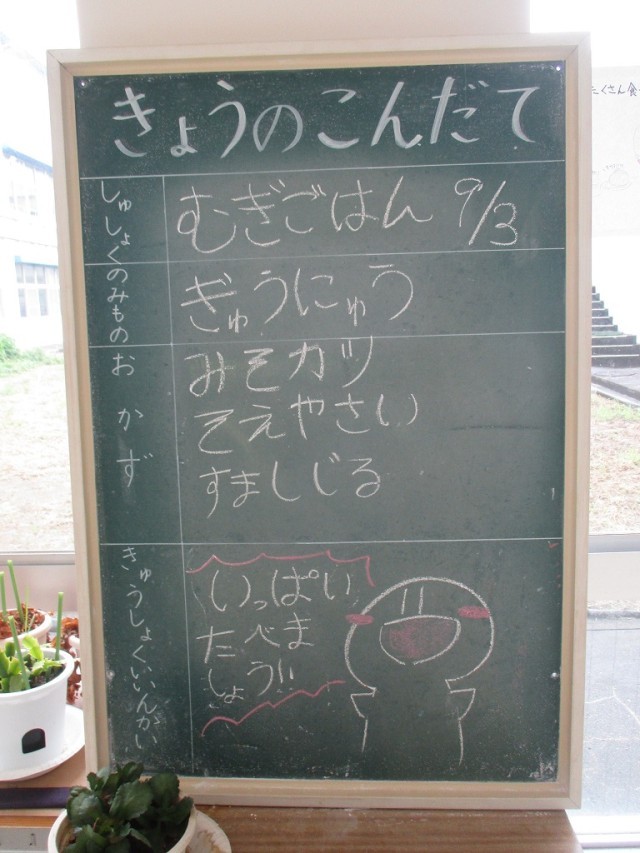 きょうのこんだて
しゅしょく
むぎごはん 9/3
のみもの
ぎゅうにゅう
おかず
みそカツ
そえやさい
すましじる
きゅうしょくいいんかい
いっぱい
たべま
しょう!!
たくさん食